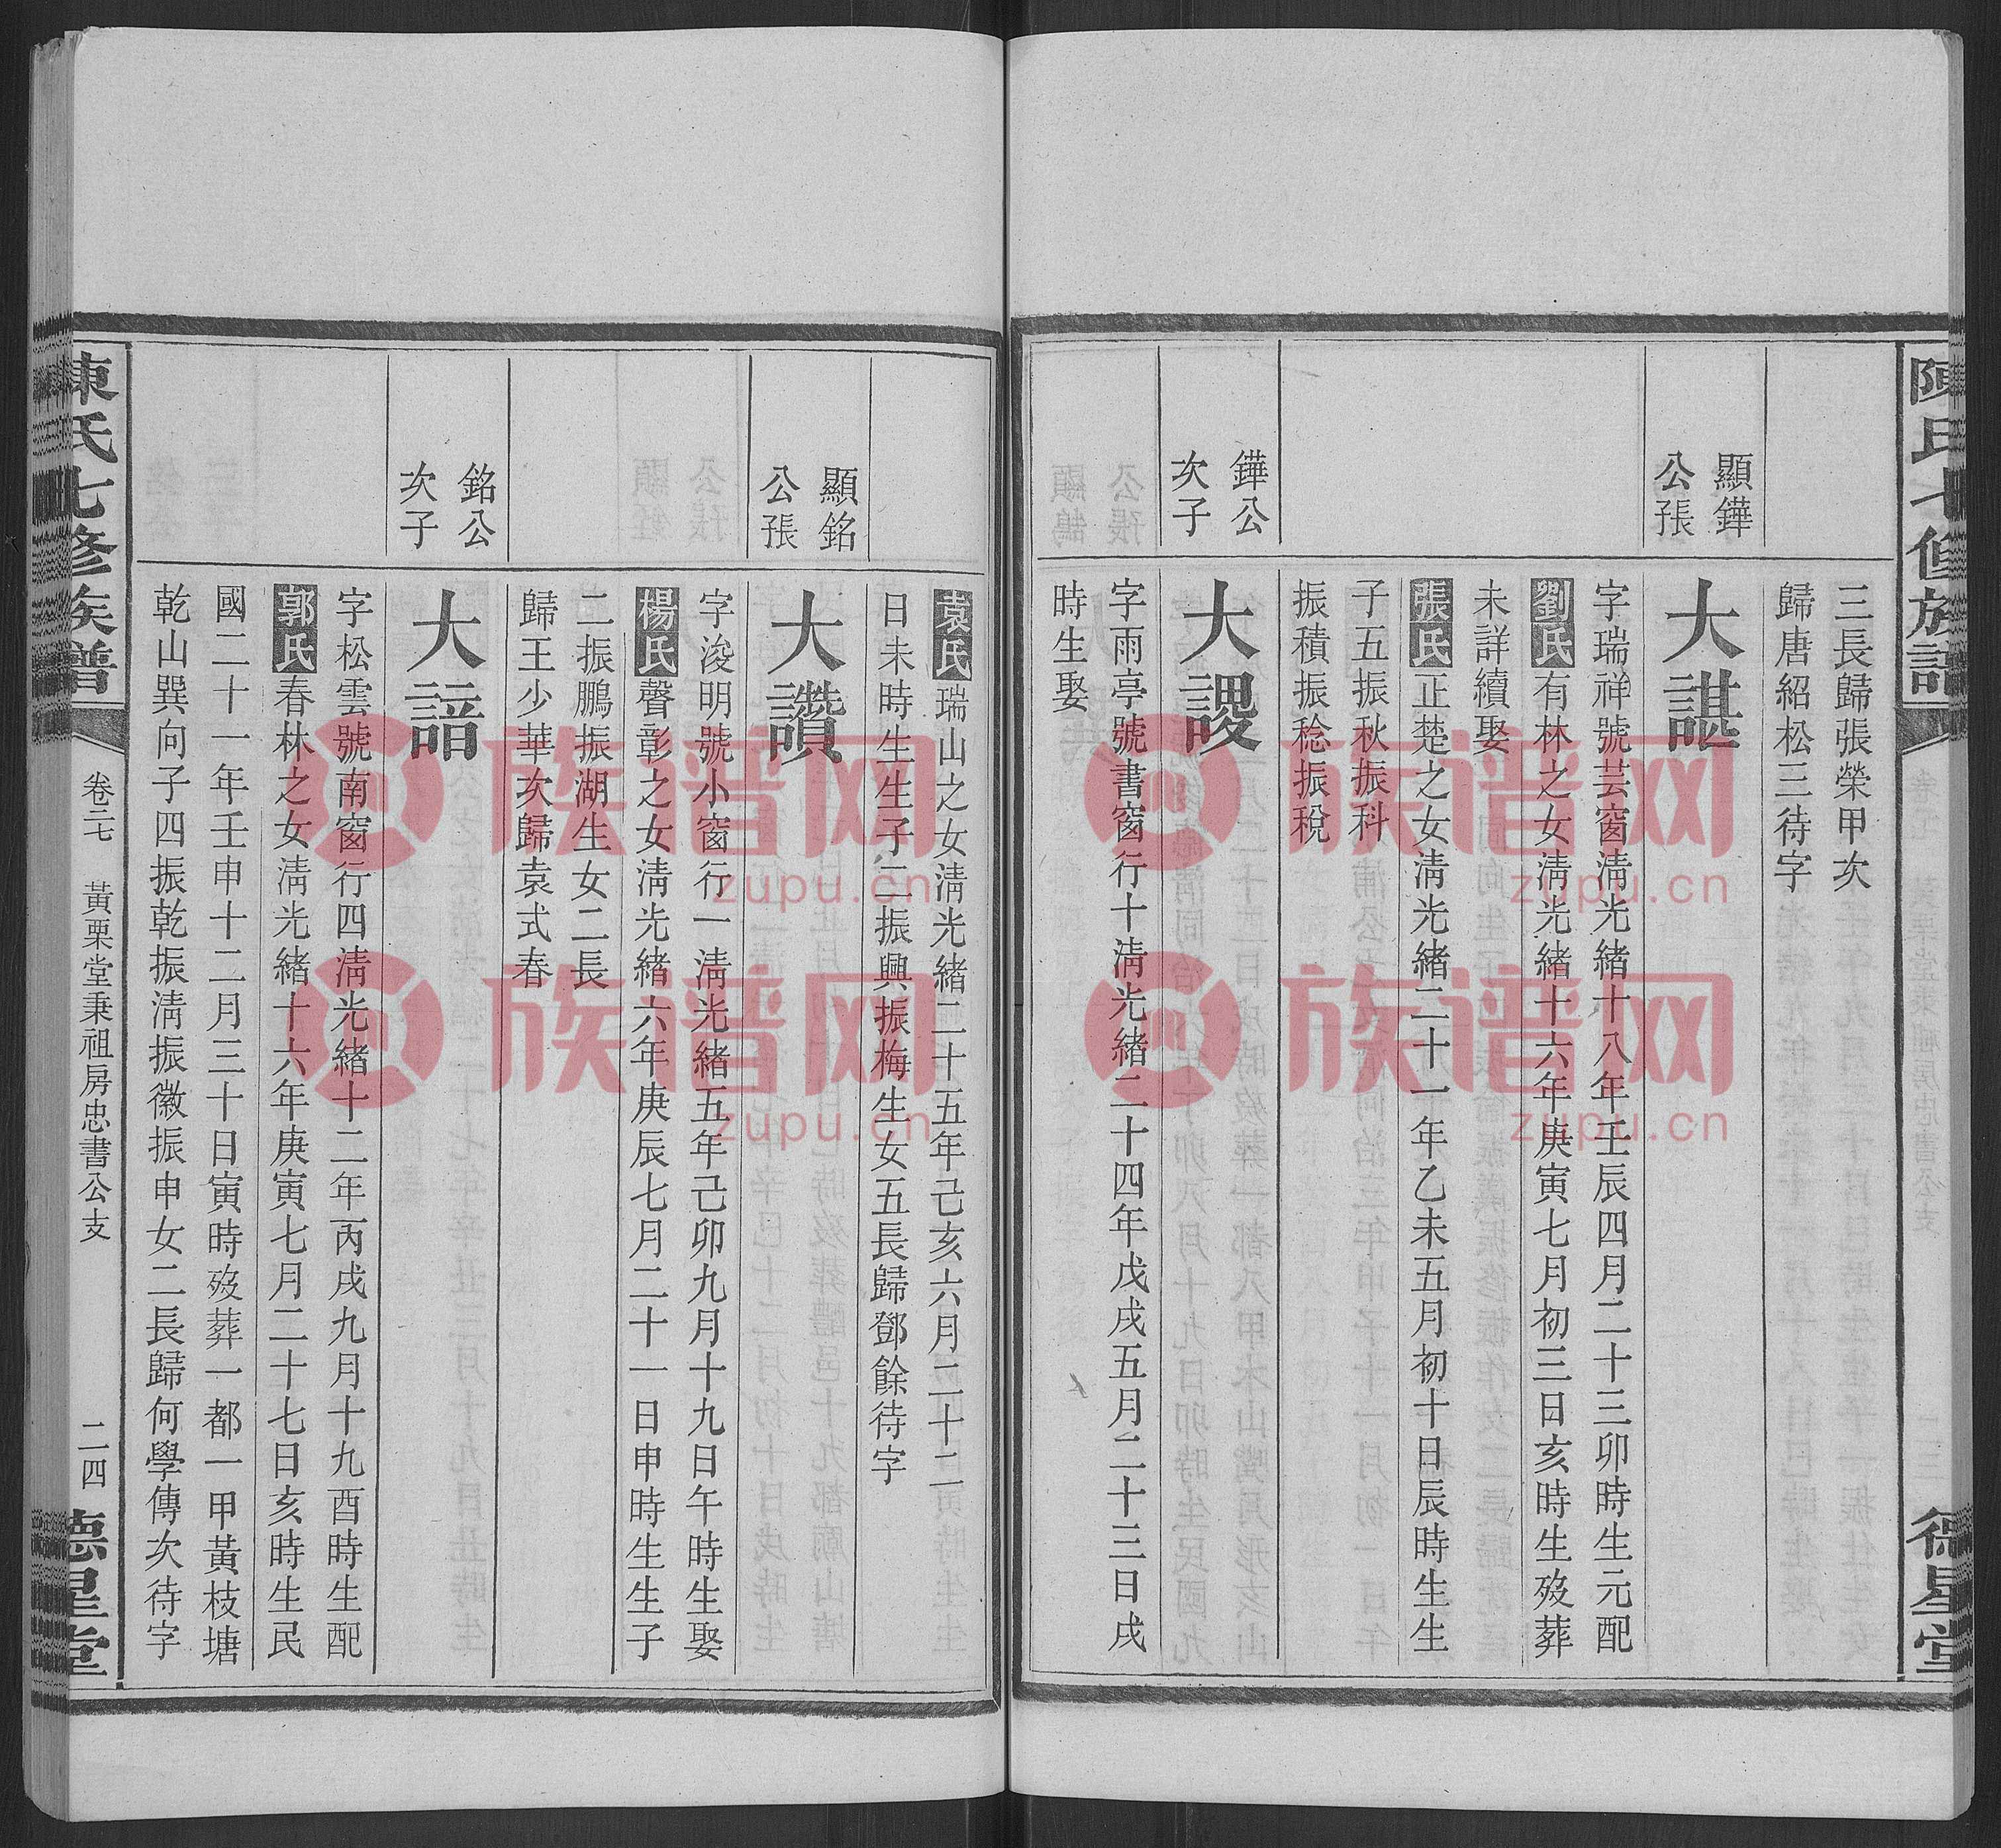 陳氏七修族譜
德星堂
三長歸張榮甲次
歸唐紹松三待字
顯鏵
公張
大諶
字瑞祥號芸窗淸光緒十八年壬辰四月二十三卯時生元配
劉氏有林之女淸光緒十六年庚寅七月初三日亥時生歿葬
未詳續娶
張氏正楚之女淸光緒二十一年乙未五月初十日辰時生生
子五振秋振科
振積振稔振稅
鏵公
次子
大謖
字雨亭號書窗行十淸光緒二十四年戊戌五月二十三日戌
時生娶
袁氏瑞山之女淸光緒二十五年己亥六月二十二
日未時生生子二振興振梅生女五長歸鄧餘待字
顯銘
公張
大讚
字浚明號小窗行一淸光緒五年己卯九月十九日午時生娶
楊氏聲彰之女淸光緒六年庚辰七月二十一日申時生生子
二振鵬振湖生女二長
歸王少華次歸袁式春
銘公
次子
大諳
字松雲號南窗行四淸光緒十二年丙戌九月十九酉時生配
郭氏春林之女淸光緒十六年庚寅七月二十七日亥時生民
國二十一年壬申十二月三十日寅時歿葬一都一甲黃枝塘
乾山巽向子四振乾振淸振徽振申女二長歸何學傳次待字
陳氏七修族譜
卷二七
黃栗堂秉祖房忠書公支
二四
德星堂
族谱网
zupu.cn
族谱网
zupu.cn
族谱网
zupu.cn
族谱网
zupu.cn